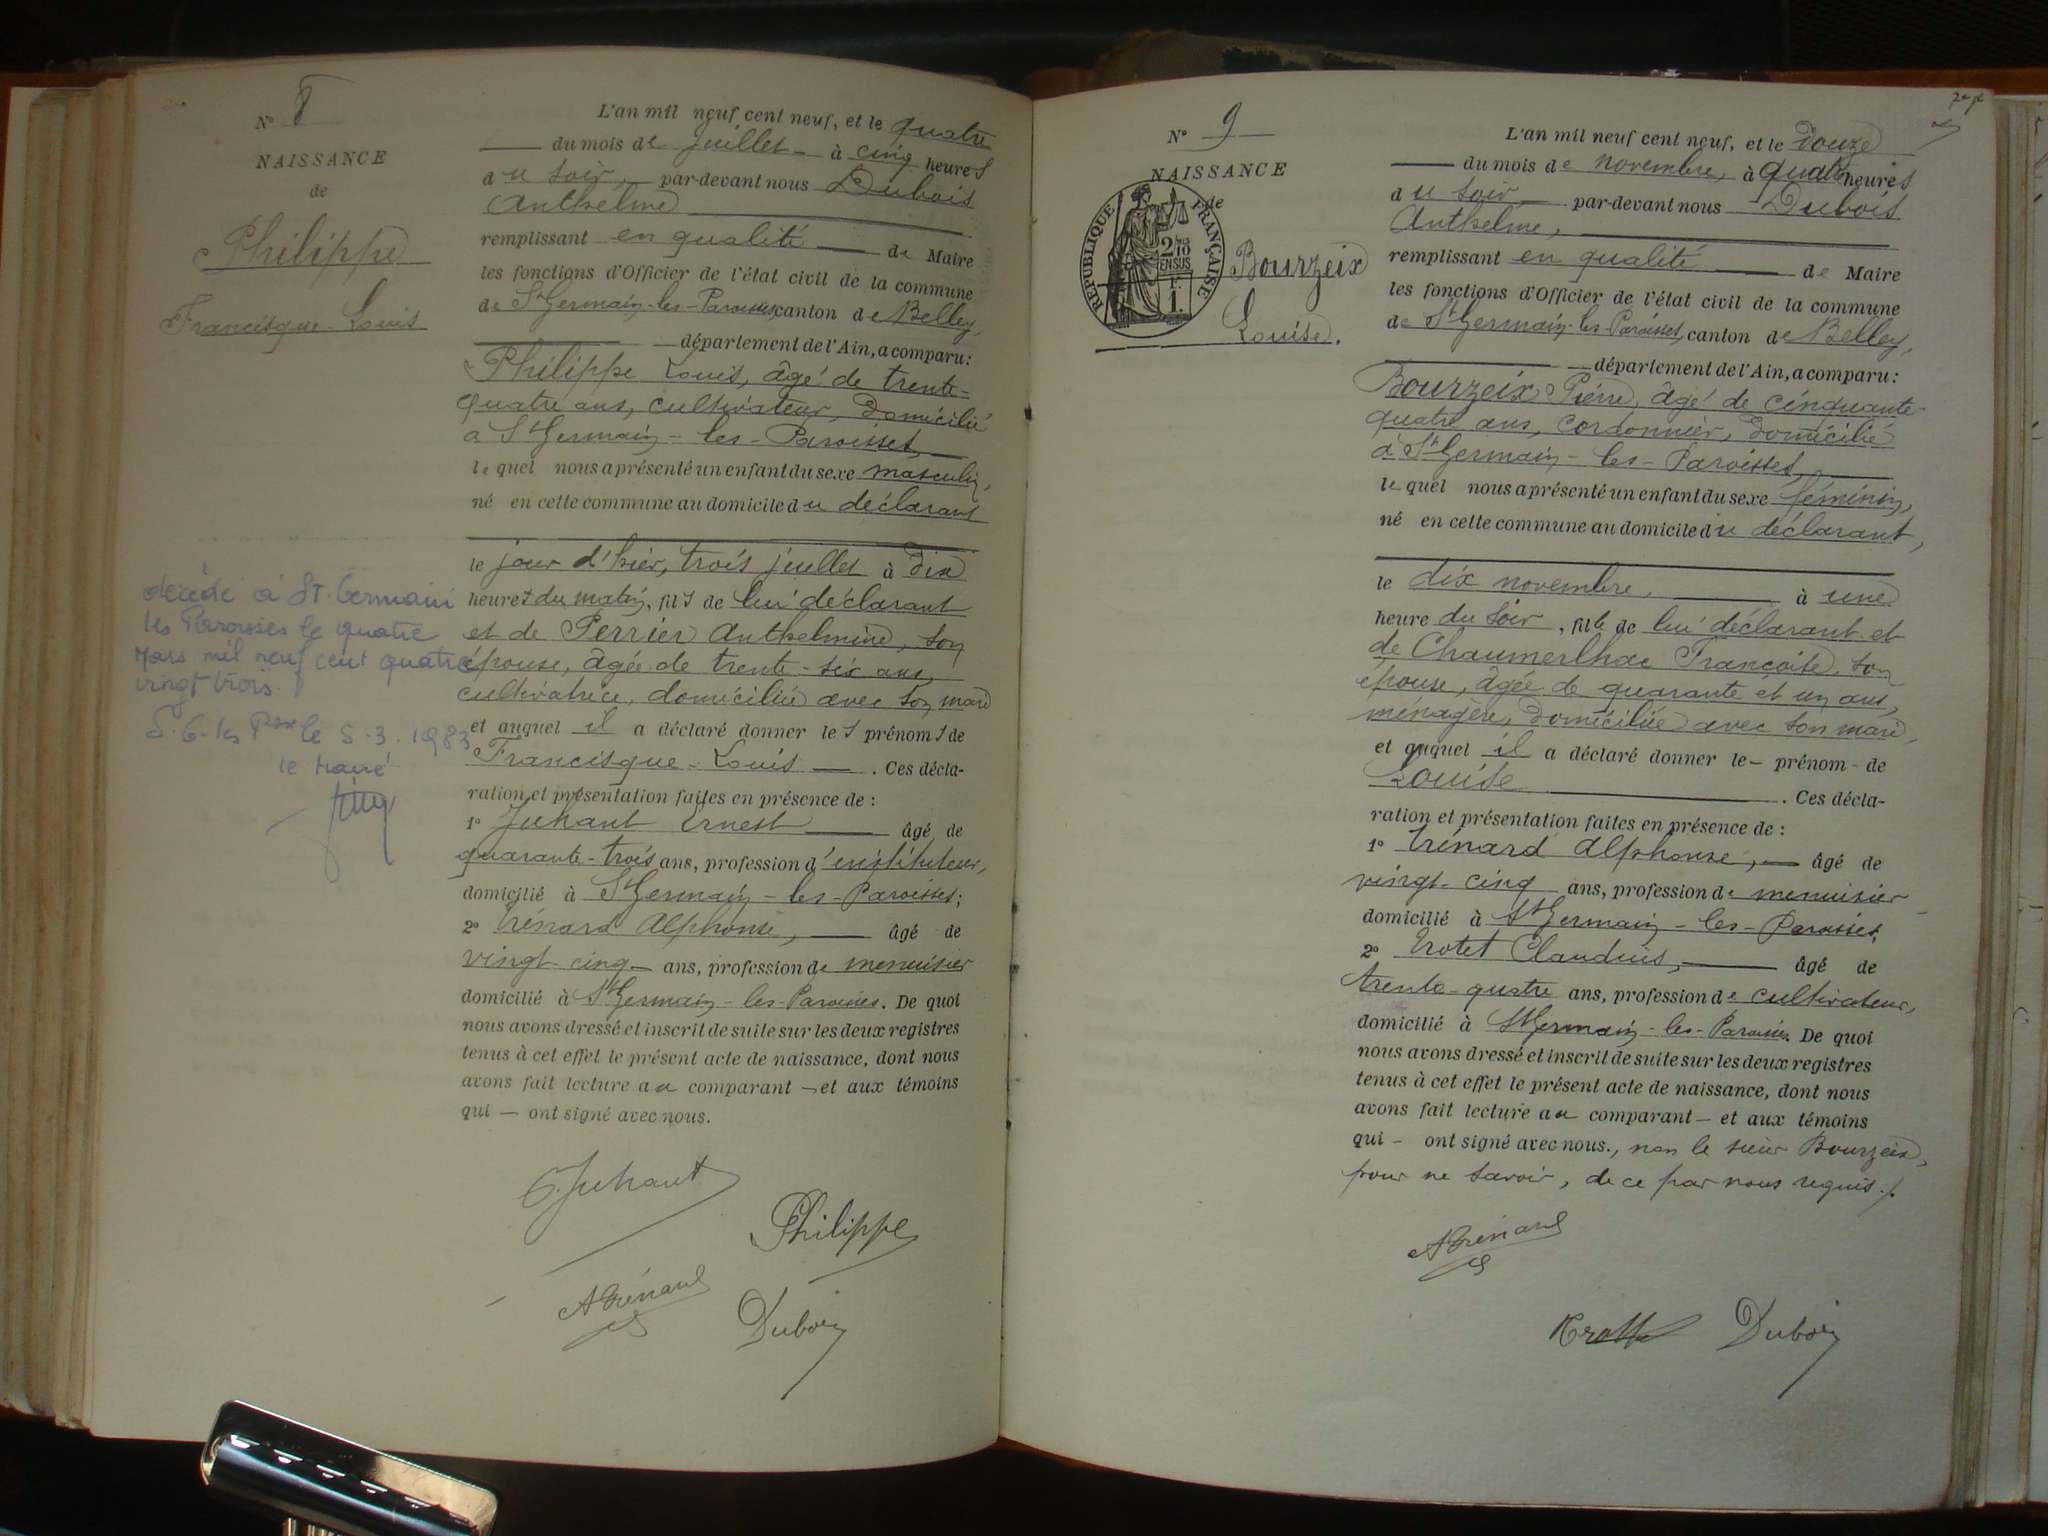 N° 8
NAISSANCE
de
Philippe
Francisque-Louis
L'an mil neuf cent neuf, et le quatre
du mois de juillet à cinq heures
du soir, par-devant nous Dubois
Anthelme
remplissant en qualité de Maire
les fonctions d'Officier de l'état civil de la commune
de St Germain-les-Paroisses, canton de Belley,
département de l'Ain, a comparu:
Philippe Louis, âgé de trente-
quatre ans, cultivateur, domicilié
à St Germain-les-Paroisses,
lequel nous a présenté un enfant du sexe masculin,
né en cette commune au domicile du déclarant
le jour d'hier, trois juillet à dix
heures du matin, fils de lui déclarant
et de Perrier Anthelmine, son
épouse, âgée de trente-six ans,
cultivatrice, domiciliée avec son mari
et auquel il a déclaré donner les prénoms de
Francisque-Louis. Ces décla-
ration et présentation faites en présence de :
1° Juhant Ernest âgé de
quarante-trois ans, profession d'instituteur,
domicilié à St Germain-les-Paroisses;
2° Trénard Alphonse, âgé de
vingt-cinq ans, profession de menuisier
domicilié à St Germain-les-Paroisses. De quoi
nous avons dressé et inscrit de suite sur les deux registres
tenus à cet effet le présent acte de naissance, dont nous
avons fait lecture au comparant et aux témoins
qui ont signé avec nous.
décédé à St. Germain
les Paroisses le quatre
Mars mil neuf cent quatre
vingt trois.
S. G. les Pses le 5.3.1983
le Maire
E. Juhant
Philippe
A Trénard
Dubois
N° 9
NAISSANCE
de
RÉPUBLIQUE FRANÇAISE
2/10
EN SUS
1 F.
Bourzeix
Louise.
L'an mil neuf cent neuf, et le douze
du mois de novembre, à quatre heures
du soir par-devant nous Dubois
Anthelme,
remplissant en qualité de Maire
les fonctions d'Officier de l'état civil de la commune
de St Germain-les-Paroisses, canton de Belley,
département de l'Ain, a comparu:
Bourzeix Pierre, âgé de cinquante-
quatre ans, cordonnier, domicilié
à St Germain-les-Paroisses,
lequel nous a présenté un enfant du sexe féminin,
né en cette commune au domicile du déclarant,
le dix novembre, à une
heure du soir, fille de lui déclarant et
de Chaumerlhac Françoise, son
épouse, âgée de quarante et un ans,
ménagère, domiciliée avec son mari,
et auquel il a déclaré donner le prénom de
Louise. Ces décla-
ration et présentation faites en présence de :
1° Trénard Alphonse, âgé de
vingt-cinq ans, profession de menuisier
domicilié à St Germain-les-Paroisses,
2° Trotet Claudius, âgé de
trente-quatre ans, profession de cultivateur,
domicilié à St Germain-les-Paroisses. De quoi
nous avons dressé et inscrit de suite sur les deux registres
tenus à cet effet le présent acte de naissance, dont nous
avons fait lecture au comparant et aux témoins
qui ont signé avec nous., non le sieur Bourzeix,
pour ne savoir, de ce par nous requis.
A Trénard
Dubois